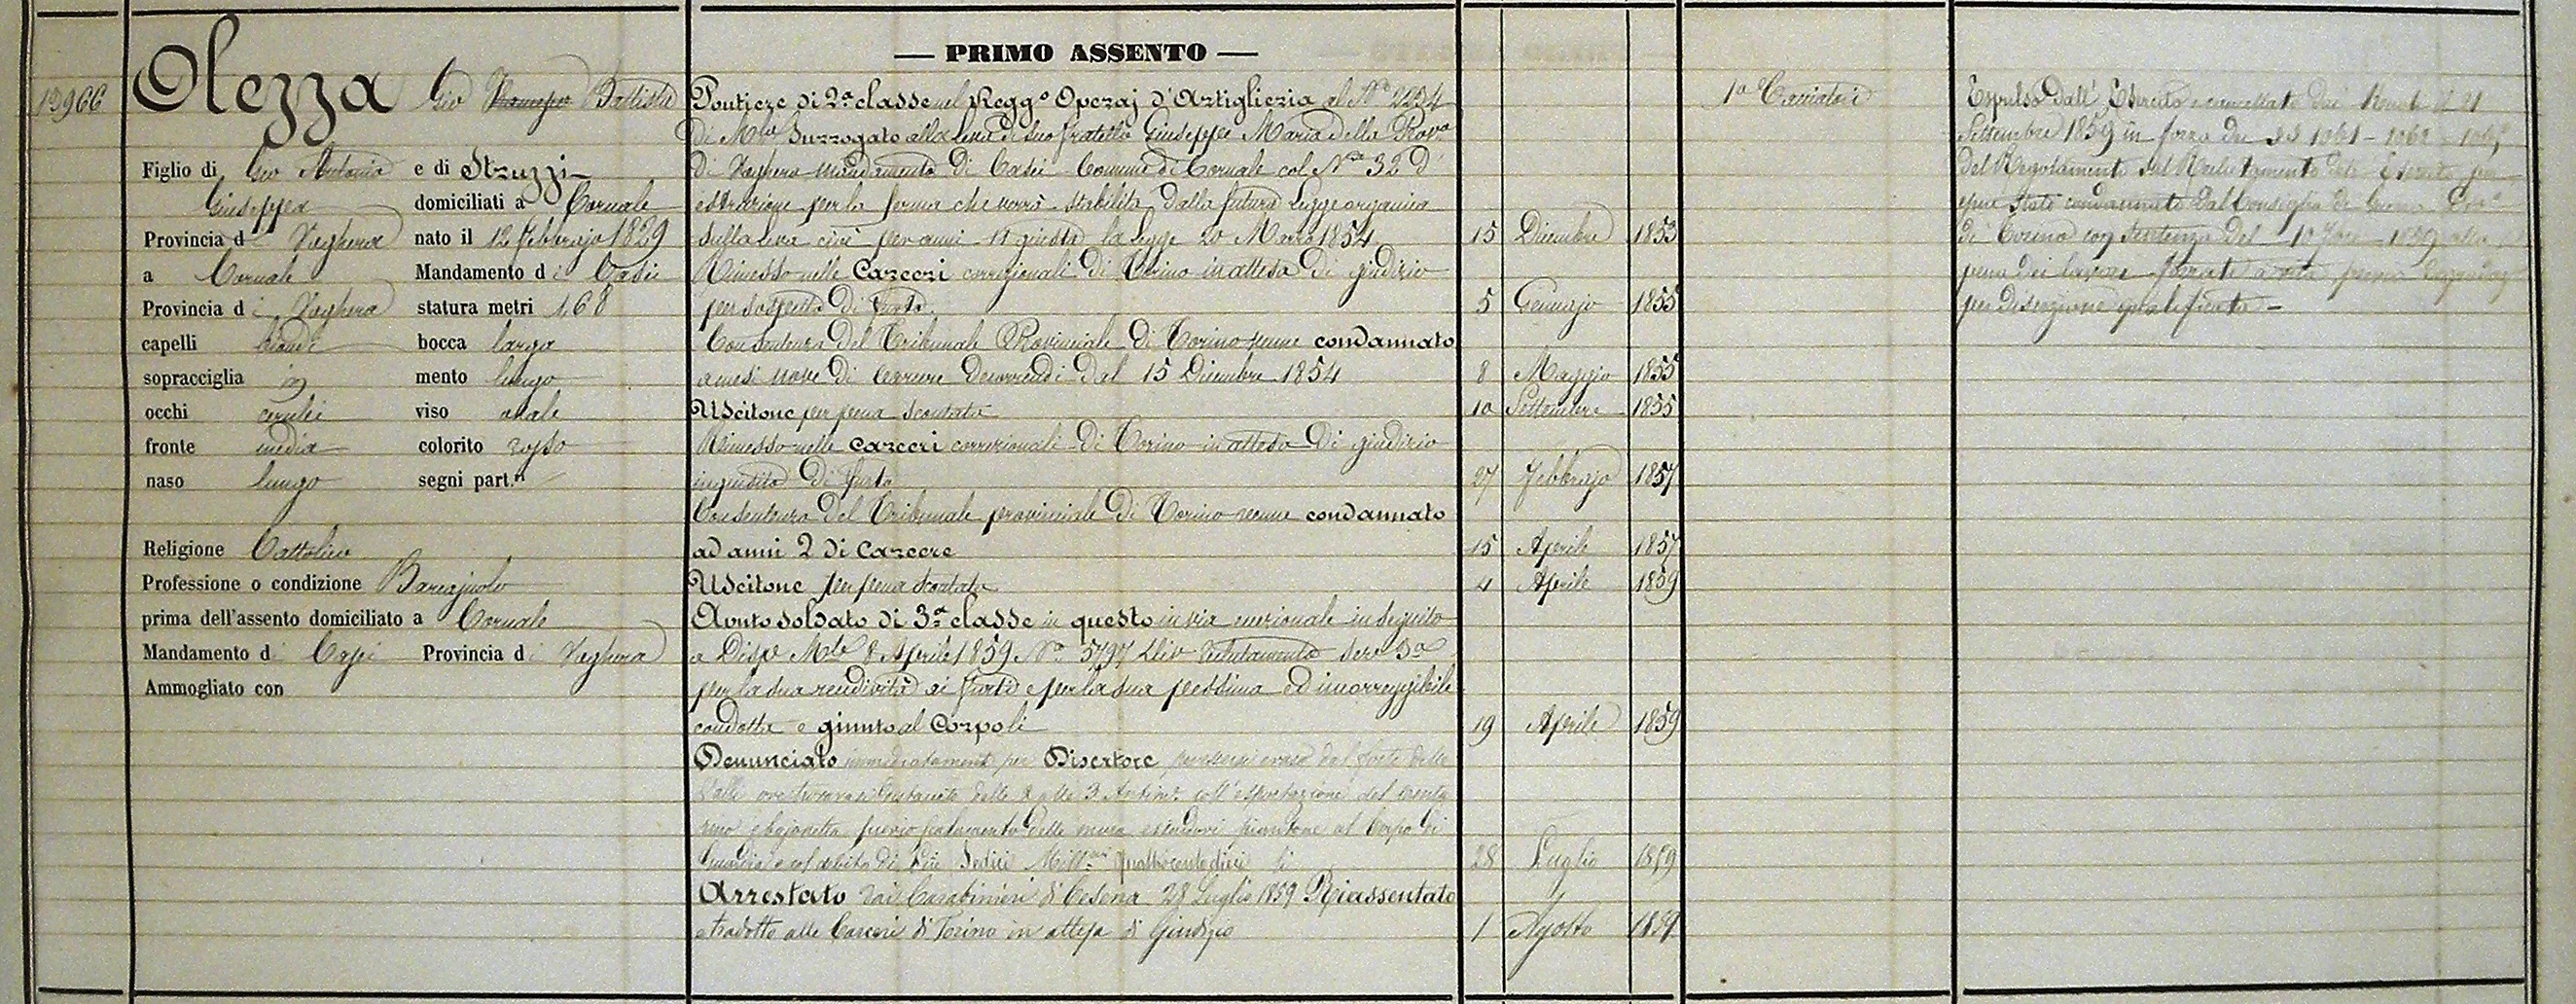 — PRIMO ASSENTO —
13966
Olezza Gio Battista
Figlio di Gio Antonio e di Struzzi
Giuseppa domiciliati a Cornale
Provincia di Voghera nato il 12 Febbrajo 1829
a Cornale Mandamento di Casei
Provincia di Voghera statura metri 1,68
capelli biondi bocca larga
sopracciglia id mento lungo
occhi cerulei viso ovale
fronte media colorito rosso
naso lungo segni part.ri
Religione Cattolica
Professione o condizione Barcajuolo
prima dell'assento domiciliato a Cornale
Mandamento di Casei Provincia di Voghera
Ammogliato con
Pontiere di 2a classe nel Regg.o Operaj d'Artiglieria al No 2234
di Mla Surrogato alla leva di suo fratello Giuseppe Maria della Prova
di Voghera mandamento di Casei Comune di Cornale col No 32 d'
estrazione per la ferma che verrà stabilita dalla futura legge organica
sulla leva cioè per anni 11 giusta la legge 20 Marzo 1854 15 Dicembre 1853
Rimesso nelle Carceri correzionali di Torino in attesa di giudizio
per sospetto di furto 5 Gennajo 1855
Con sentenza del Tribunale Provinciale di Torino venne condannato
a mesi nove di carcere decorrendi dal 15 Dicembre 1854 8 Maggio 1855
Uscitone per pena scontata 10 Settembre 1855
Rimesso nelle Carceri correzionali di Torino in attesa di giudizio
inquisito di furto 27 Febbrajo 1857
Con sentenza del Tribunale provinciale di Torino venne condannato
ad anni 2 di Carcere 15 Aprile 1857
Uscitone per pena scontata 4 Aprile 1859
Avuto soldato di 3a classe in questo in via eccezionale in seguito
a Disp.o Mle 8 Aprile 1859 No 5797 Div Reclutamento Sez 3a
per la sua recidività ai furti e per la sua pessima ed incorreggibile
condotta e giunto al Corpo li 19 Aprile 1859
Denunciato immediatamente per Disertore per essersi evaso dal forte delle
Valli ove trovavasi dalle 2 alle 3 coll'esportazione del
e bajonetta previo delle mura al Corpo di
Guardia e col debito di Lire Sedici Mill.mi quattrocentodieci li 28 Luglio 1859
Arrestato dai Carabinieri di Cesena 28 Luglio 1859 Riassentato
e tradotto alle Carceri di Torino in attesa di Giudizio 1 Agosto 1859
1o Cacciatori
Espulso dall'Esercito e cancellato dai Ruoli il 21
Settembre 1859 in forza dei §§ 1061 - 1062 -
del Regolamento sul Reclutamento dell'Esercito per
essere stato condannato dal Consiglio di Guerra Div.o
di Torino con sentenza del 10 - 1859 alla
pena dei lavori forzati a vita previa
per diserzione qualificata -